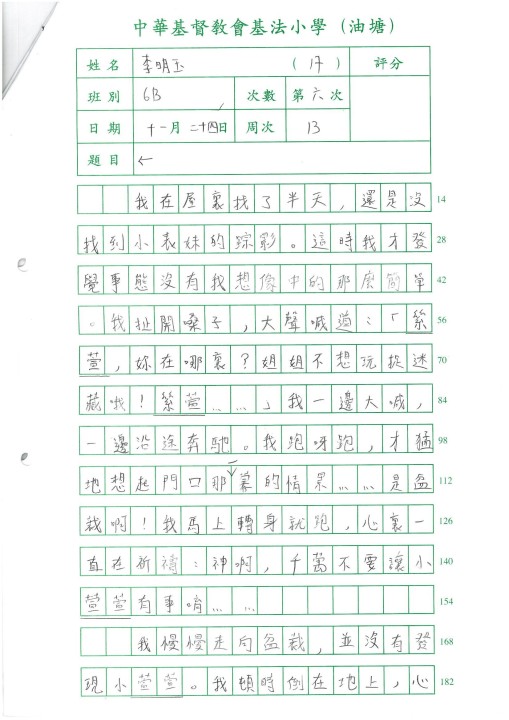 中華基督教會基法小學（油塘）
姓名 李明玉 （17） 評分
班別 6B 次數 第六次
日期 十一月二十四日 周次 13
題目 ←
我在屋裏找了半天，還是沒 14
找到小表妹的踪影。這時我才發 28
覺事態沒有我想像中的那麼簡單 42
。我扯開嗓子，大聲喊道：「縈 56
萱，妳在哪裏？姐姐不想玩捉迷 70
藏哦！縈萱……」我一邊大喊， 84
一邊沿途奔馳。我跑呀跑，才猛 98
地想起門口那一幕的情景……是盆 112
栽啊！我馬上轉身就跑，心裏一 126
直在祈禱：神啊，千萬不要讓小 140
萱萱有事唷…… 154
我慢慢走向盆栽，並沒有發 168
現小萱萱。我頓時倒在地上，心 182